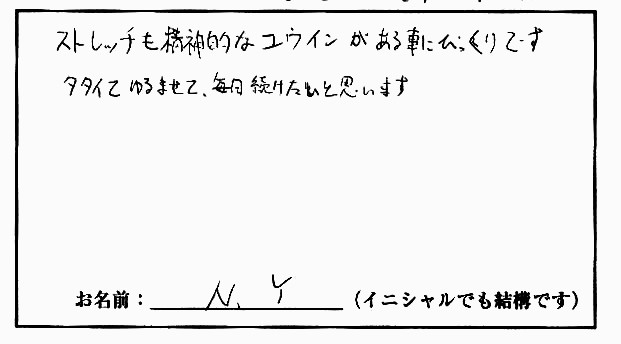 ストレッチも精神的なユウインがある事にびっくりです
タタイてゆるませて、毎日続けたいと思います
お名前： N. Y （イニシャルでも結構です）